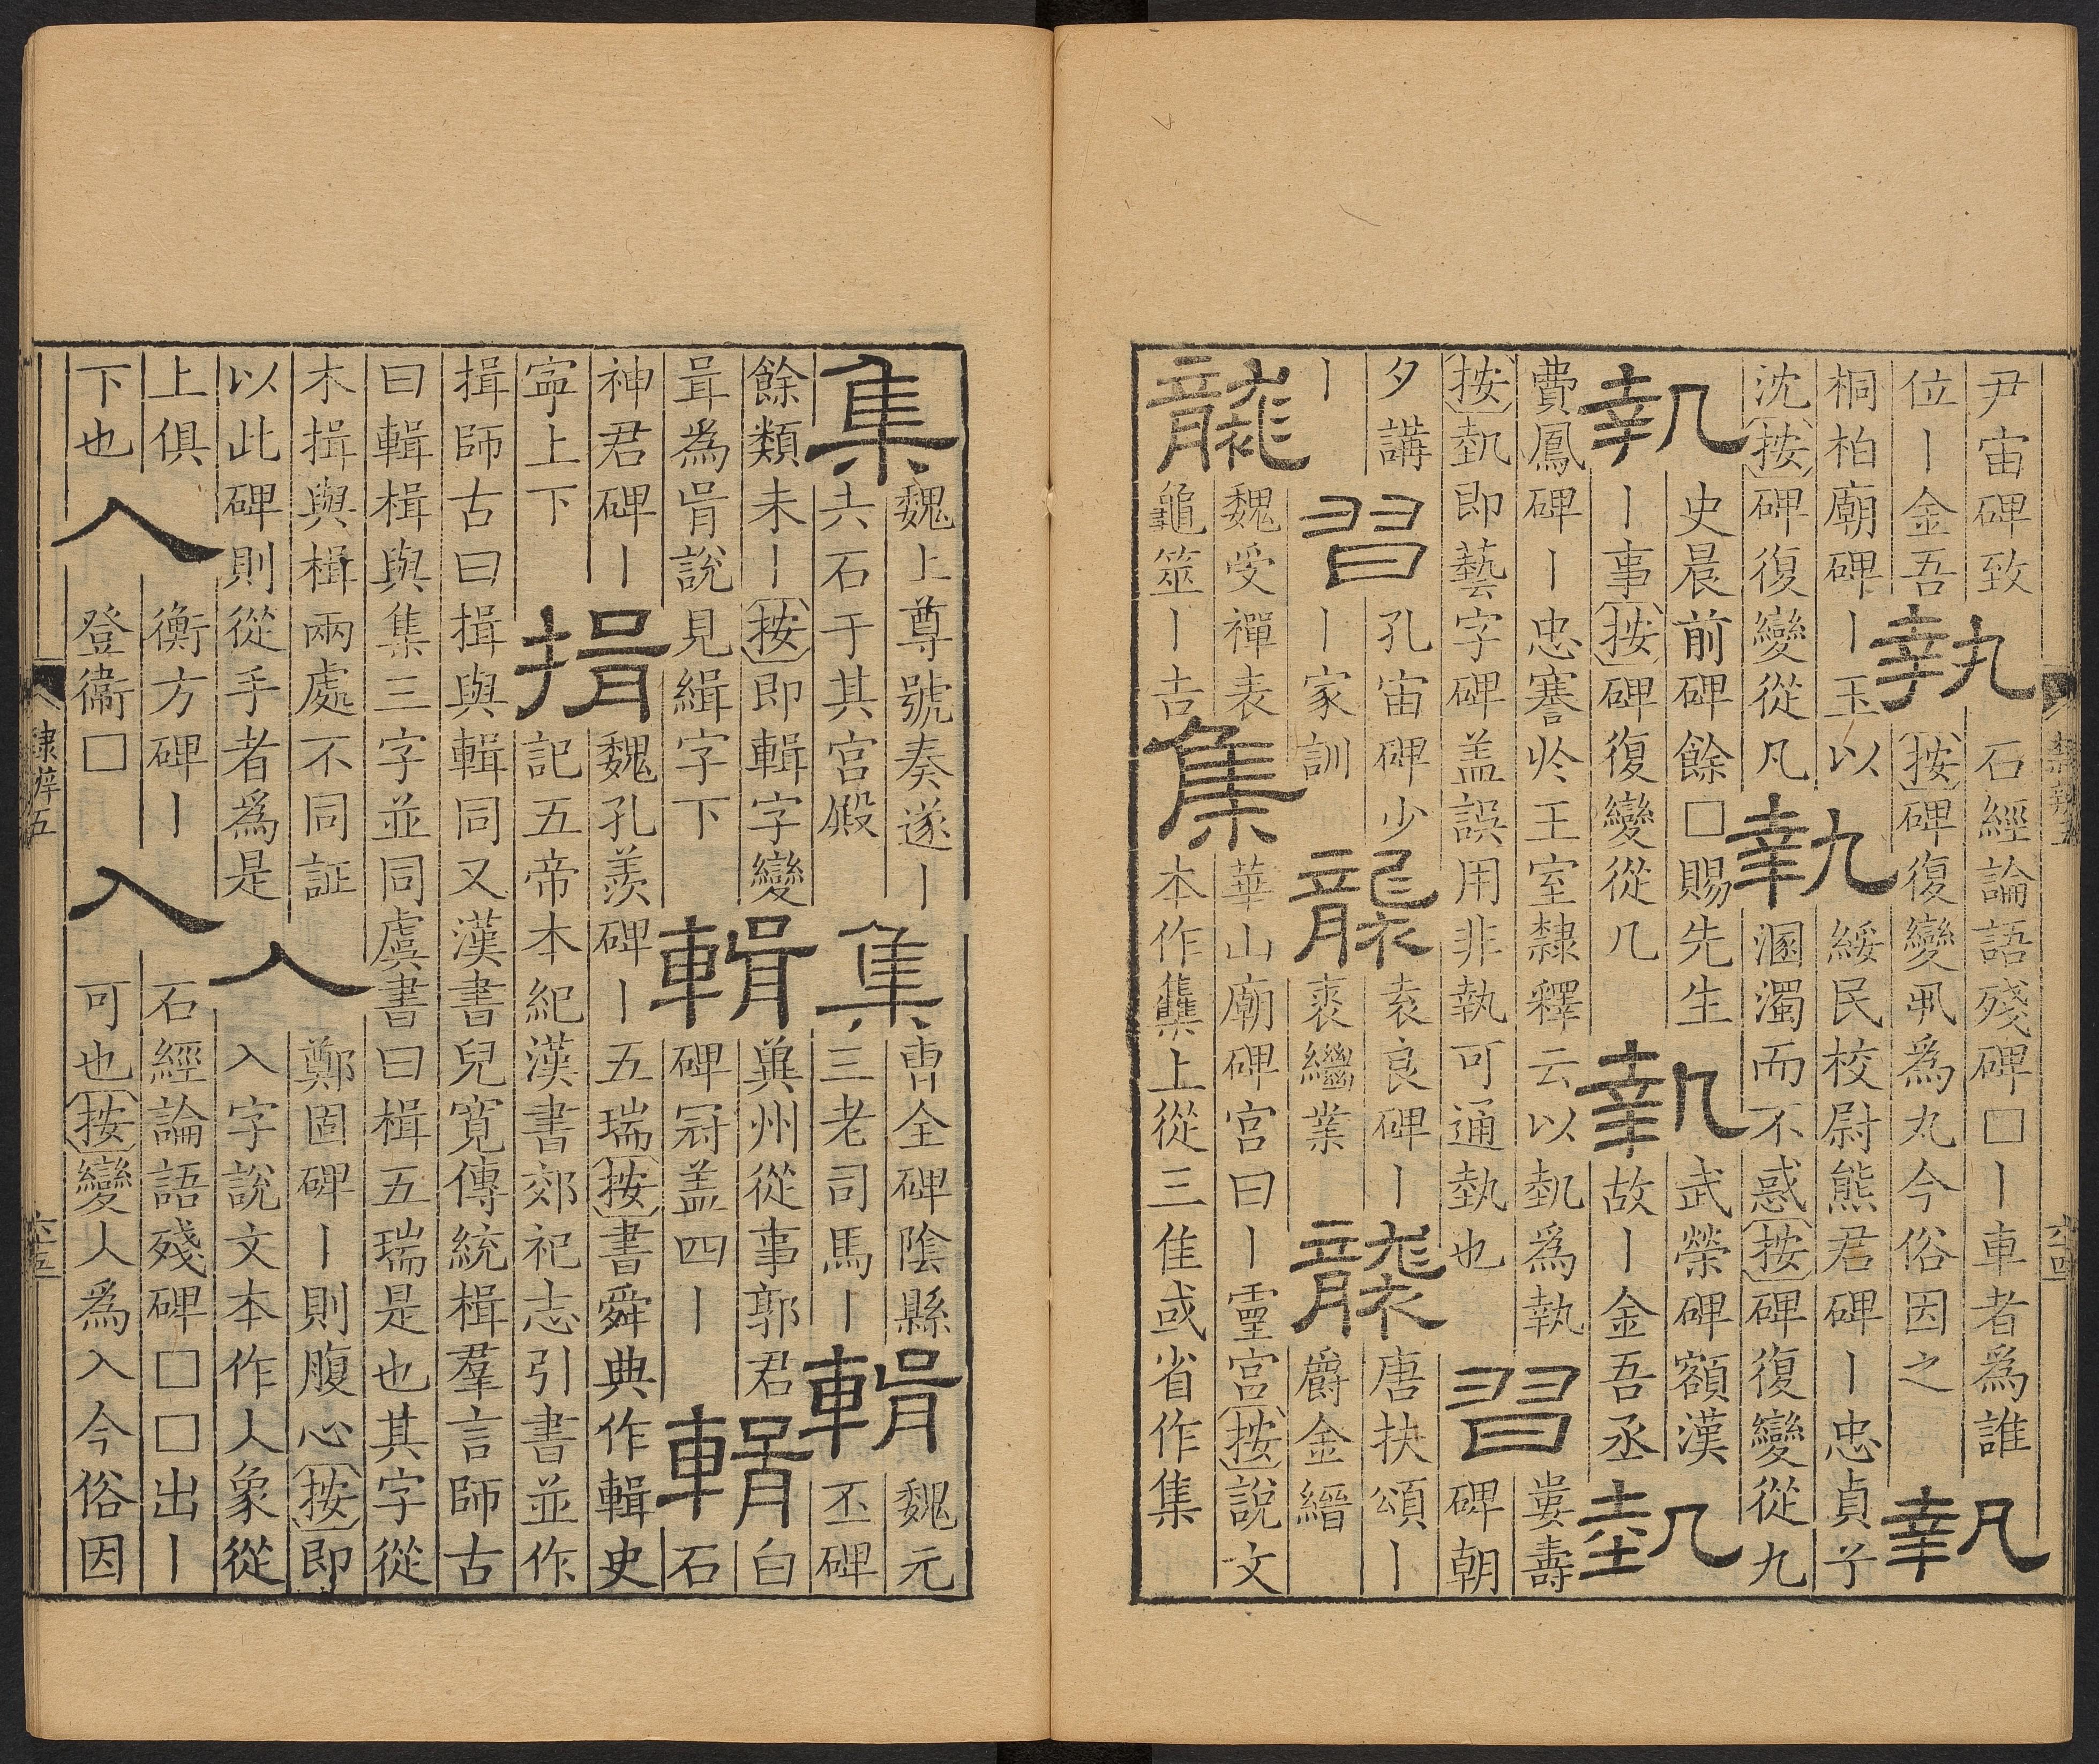 尹宙碑致
位〡金吾
執
石經論語殘碑□〡車者爲誰
按碑復變丮爲丸今俗因之
執
桐柏廟碑〡玉以
沈按碑復變從凡
執
綏民校尉熊君碑〡忠貞子
涃濁而不惑按碑復變從九
執
史晨前碑餘□賜先生
〡事按碑復變從几
執
武榮碑額漢
故〡金吾丞
埶
費鳳碑〡忠謇於王室隸釋云以埶爲執
按埶即藝字碑盖誤用非執可通埶也
習
婁壽
碑朝
夕講
〡
習
孔宙碑少
〡家訓
襲
袁良碑〡
裘繼業
襲
唐扶頌〡
爵金緇
襲
魏受禪表
龜筮〡吉
集
華山廟碑宮曰〡靈宮按說文
本作雧上從三隹或省作集
集
魏上尊號奏遂〡
六石于其宮殿
集
曹全碑陰縣
三老司馬〡
輯
魏元
丕碑
餘類未〡按即輯字變
咠爲肙說見緝字下
輯
兾州從事郭君
碑冠盖四〡
輯
白
石
神君碑〡
寍上下
揖
魏孔羨碑〡五瑞按書舜典作輯史
記五帝本紀漢書郊祀志引書並作
揖師古曰揖與輯同又漢書兒寬傳統楫羣言師古
曰輯楫與集三字並同虞書曰楫五瑞是也其字從
木揖與楫兩處不同証
以此碑則從手者爲是
入
鄭固碑〡則腹心按即
入字說文本作人象從
上俱
下也
入
衡方碑〡
登衞□
入
石經論語殘碑□□出〡
可也按變人爲入今俗因
隸辨五
六十五